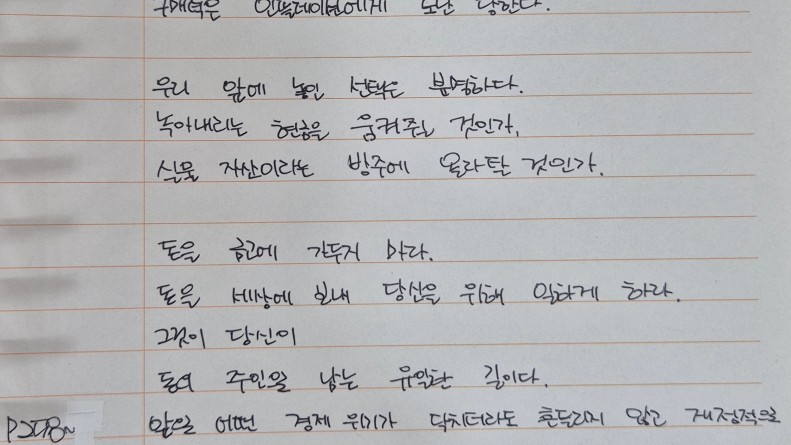 구매력은 인플레이션에게 도난 당한다.
우리 앞에 놓인 선택은 분명하다.
녹아내리는 현금을 움켜쥘 것인가,
실물 자산이라는 방주에 올라탈 것인가.
돈을 금고에 가두지 마라.
돈을 세상에 보내 당신을 위해 일하게 하라.
그것이 당신이
돈의 주인으로 남는 유일한 길이다.
P278~ 앞으로 어떤 경제 위기가 닥치더라도 흔들리지 않고 재정적으로